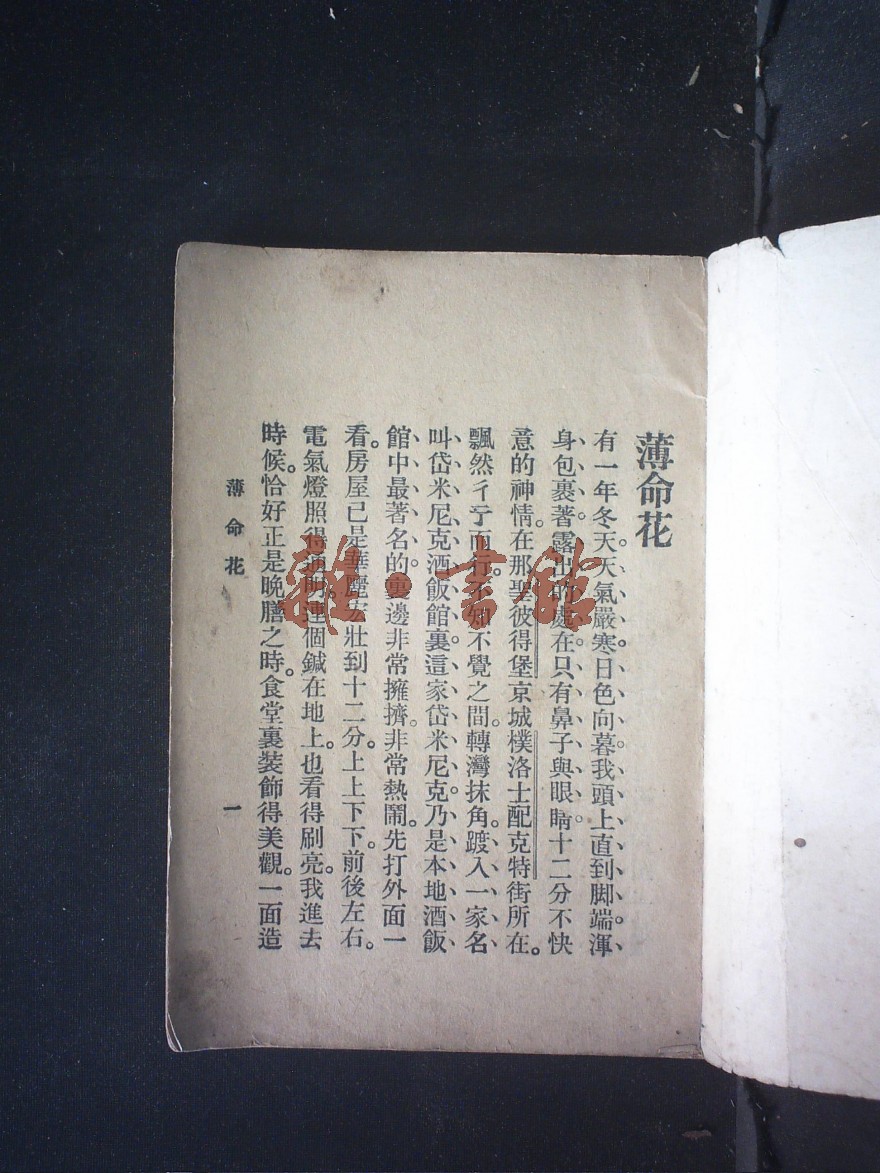 薄命花
有一年冬天。天氣嚴寒。日色向暮。我頭上直到脚端。渾
身包裹著。露出的處在。只有鼻子與眼睛。十二分不快
意的神情。在那聖彼得堡京城樸洛士配克特街所在。
飄然彳亍而行。不知不覺之間。轉灣抹角。踱入一家名
叫岱米尼克酒飯館裏。這家岱米尼克。乃是本地酒飯
館中最著名的。裏邊非常擁擠。非常熱鬧。先打外面一
看。房屋已是華麗宏壯到十二分。上上下下。前後左右。
電氣燈照得通明。連個鍼在地上。也看得刷亮。我進去
時候。恰好正是晚膳之時。食堂裏裝飾得美觀。一面造
薄命花
一
雜·書館